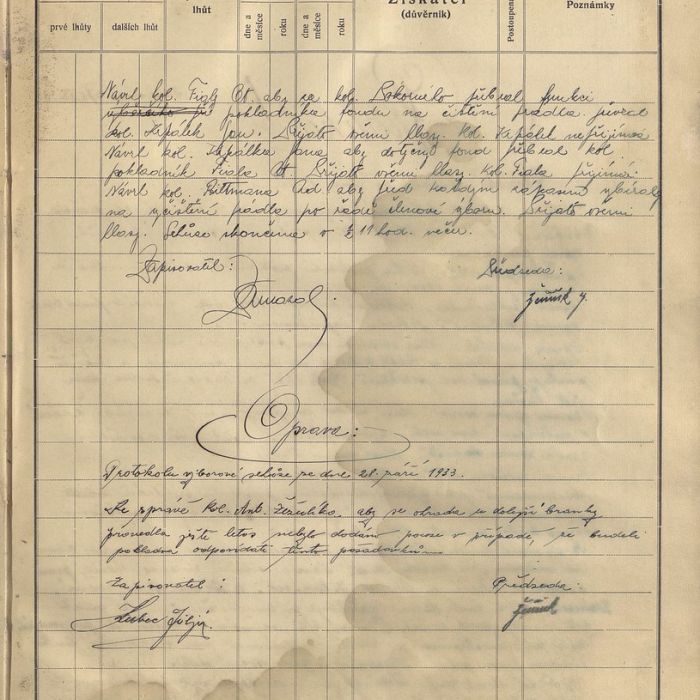 prvé lhůty
dalších lhůt
lhůt
dne a měsíce
roku
dne a měsíce
roku
Získatel
(důvěrník)
Postoupeno
Poznámky
Návrh kol. Fialy Ot. aby za kol. funkci
pokladníka fondu na čištění prádla
kol. Kapálek Jan. Přijato všemi hlasy. Kol. Kapálek nepřijímá
Návrh kol. Kapálka Jana aby dotyčný fond přibral kol.
pokladník Fiala Ot. Přijato všemi hlasy. Kol. Fiala přijímá.
Návrh kol. Ad. aby před každým zápasem vybíraly
na vyčištění prádla po řadě členové výboru. Přijato všemi
hlasy. Schůze skončena v ½ 11 hod. večer.
Zapisovatel: Předseda:
Oprava:
Protokolu výborové schůze ze dne 21. září 1933.
Ke zprávě kol. Ant. aby se ohrada u dolejší branky
provedla ještě letos nebylo dodáno pouze v případě, že budeli
pokladna odpovídati těmto požadavkům
Zapisovatel: Předseda: